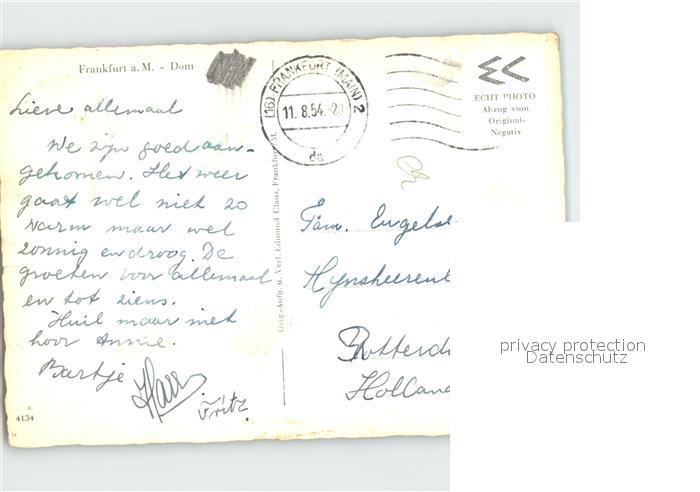 Frankfurt a. M. - Dom
Lieve allemaal
We zijn goed aan-
gekomen. Het weer
gaat wel niet zo
warm maar wel
zonnig en droog. De
groeten voor allemaal
en tot ziens.
Huil maar niet
hoor Annie.
Bartje
Fritz
4134
Orig.-Aufn. u. Verl. Edmund Claus, Frankfurt/M.
(16) FRANKFURT (MAIN) 2
11. 8.54.-20
da
EC
ECHT PHOTO
Abzug vom
Original-
Negativ
Fam. Engels
Rotterd
Holland
privacy protection
Datenschutz